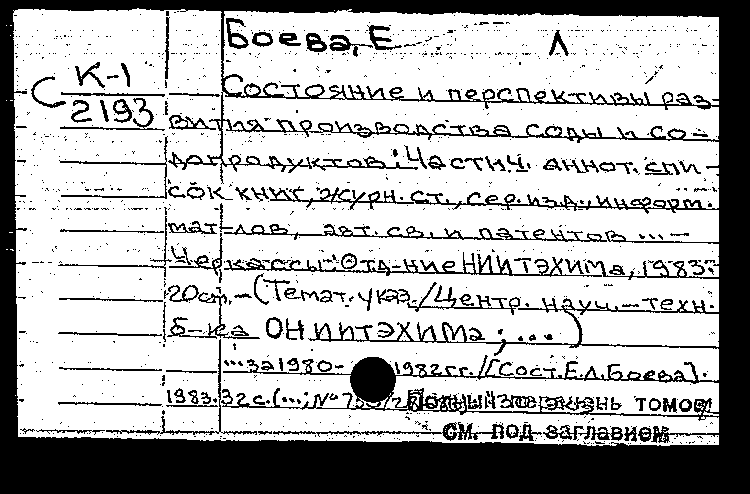 Боева, Е Л
С К-1
2193
Состояние и перспективы раз-
вития производства соды и со-
допродуктов: Частич. аннот. спи-
сок книг, журн. ст., сер. изд., информ.
мат-лов, авт. св. и патентов ... -
Черкассы: Отд-ние НИИТЭХИМа, 1983.
20см. - (Темат. указ. / Центр. науч.-техн.
б-ка ОНИИТЭХИМа; ...)
... за 1980- 1982 гг. / [Сост. Е.Л. Боева].
1983. 32 с. (...; №
Полный перечень томов
см. под заглавием